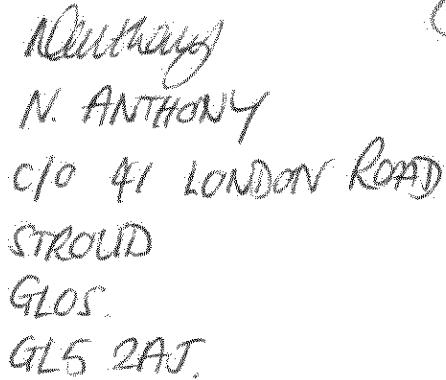 NAnthony
N. ANTHONY
C/O 41 LONDON ROAD
STROUD
GLOS.
GL5 2AJ.